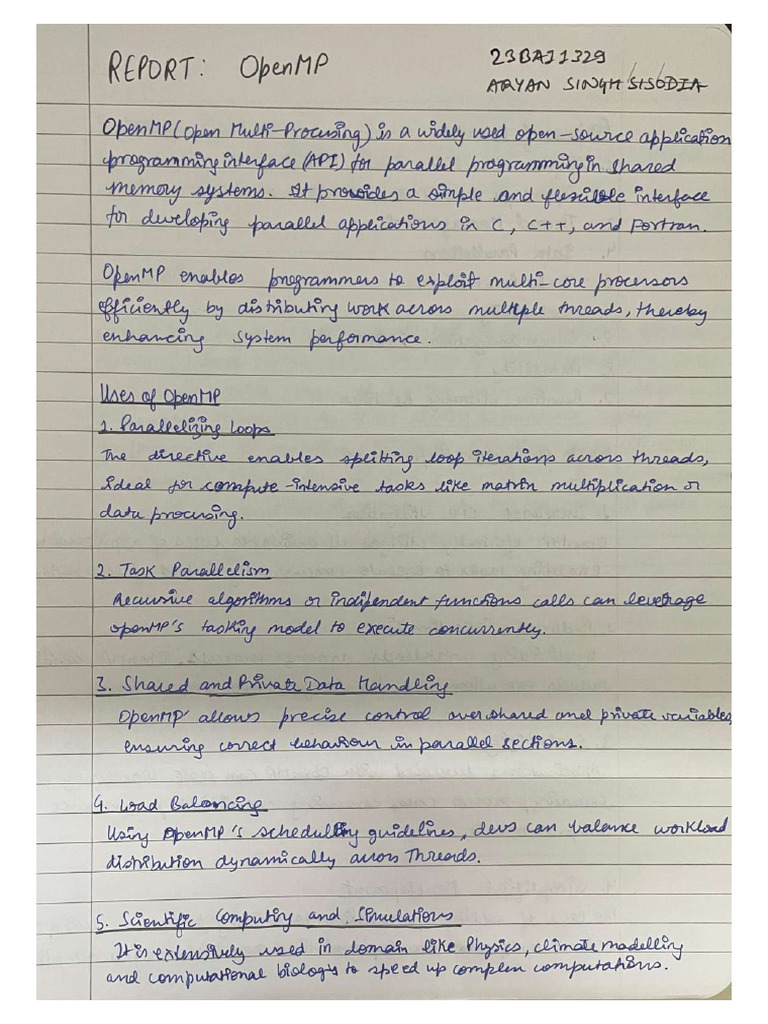 REPORT: OpenMP
23BAI1329
ARYAN SINGH SISODIA
OpenMP (Open Multi-Procusing) is a widely used open-source application
programming interface (API) for parallel programming in shared
memory systems. It provides a simple and flexible interface
for developing parallel applications in C, C++, and Fortran.
OpenMP enables programmers to exploit multi-core processors
efficiently by distributing work across multiple threads, thereby
enhancing system performance.
Uses of OpenMP
1. Parallelizing Loops
The directive enables splitting loop iterations across threads,
ideal for compute-intensive tasks like matrix multiplication or
data procusing.
2. Task Parallelism
Recursive algorithms or indipendent functions calls can leverage
openMP's tasking model to execute concurrently.
3. Shared and Private Data Handling
OpenMP allows precise control over shared and private variables
ensuring correct behaviour in parallel sections.
4. Load Balancing
Using OpenMP's scheduling guidelines, devs can balance workload
distribution dynamically across Threads.
5. Scientific Computing and Simulations
It is extensively used in domain like Physics, climate modelling
and computational biologis to speed up complex computations.